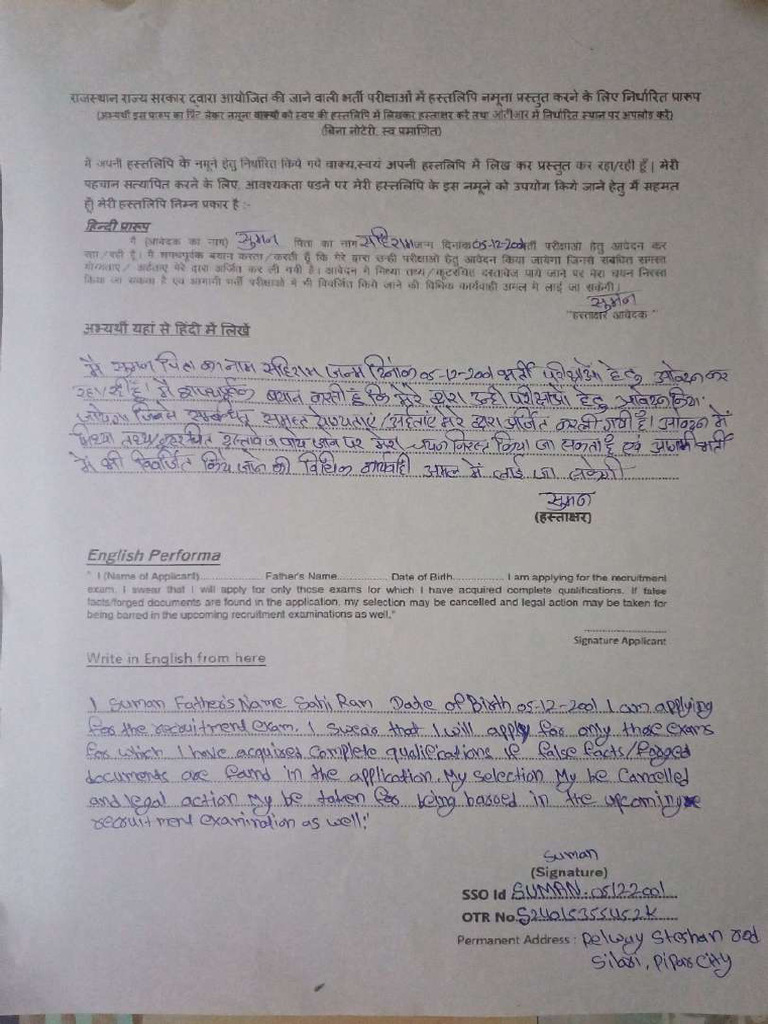 राजस्थान राज्य सरकार द्वारा आयोजित की जाने वाली भर्ती परीक्षाओं में हस्तलिपि नमूना प्रस्तुत करने के लिए निर्धारित प्रारूप
(अभ्यर्थी इस प्रारूप का प्रिंट लेकर नमूना वाक्यों को स्वयं की हस्तलिपि में लिखकर हस्ताक्षर करें तथा ओटीआर में निर्धारित स्थान पर अपलोड करें)
(बिना नोटेरी, स्व प्रमाणित)
मैं अपनी हस्तलिपि के नमूने हेतु निर्धारित किये गये वाक्य,स्वयं अपनी हस्तलिपि में लिख कर प्रस्तुत कर रहा/रही हूँ | मेरी
पहचान सत्यापित करने के लिए, आवश्यकता पडने पर मेरी हस्तलिपि के इस नमूने को उपयोग किये जाने हेतु मैं सहमत
हूँ| मेरी हस्तलिपि निम्न प्रकार है :-
हिन्दी प्रारूप
" मैं (आवेदक का नाम) सुमन पिता का नाम सहिराम जन्म दिनांक 05-12-2001 भर्ती परीक्षाओं हेतु आवेदन कर
रहा /रही हूँ। मैं शपथपूर्वक बयान करता/करती हूँ कि मेरे द्वारा उन्हीं परीक्षाओं हेतु आवेदन किया जायेगा जिनसे संबंधित समस्त
योग्यताएं / अर्हताएं मेरे द्वारा अर्जित कर ली गयी है। आवेदन में मिथ्या तथ्य/कूटरचित दस्तावेज पाये जाने पर मेरा चयन निरस्त
किया जा सकता है एवं आगामी भर्ती परीक्षाओं में भी विवर्जित किये जाने की विधिक कार्यवाही अमल में लाई जा सकेगी।
सुमन
"हस्ताक्षर आवेदक "
अभ्यर्थी यहां से हिंदी में लिखें
मैं सुमन पिता का नाम सहिराम जन्म दिनांक 05-12-2001 भर्ती परीक्षाओं हेतु आवेदन कर
रहा/रही हूँ। मैं शपथपूर्वक बयान करती हूँ कि मेरे द्वारा उन्ही परीक्षाओं हेतु आवेदन किया
जायेगा जिनसे सम्बंधित समस्त योग्यताएं/अर्हताएं मेरे द्वारा अर्जित कर ली गयी है। आवेदन में
मिथ्या तथ्य/कूटरचित दस्तावेज पाये जाने पर मेरा चयन निरस्त किया जा सकता है एवं आगामी भर्ती
में भी विवर्जित किये जाने की विधिक कार्यवाही अमल में लाई जा सकेगी
सुमन
(हस्ताक्षर)
English Performa
" I (Name of Applicant)..................... Father's Name................. Date of Birth................. I am applying for the recruitment
exam. I swear that I will apply for only those exams for which I have acquired complete qualifications. If false
facts/forged documents are found in the application, my selection may be cancelled and legal action may be taken for
being barred in the upcoming recruitment examinations as well."
Signature Applicant
Write in English from here
I Suman Father's Name Sahi Ram Date of Birth 05-12-2001 I am applying
for the recruitment exam. I swear that I will apply for only those exams
for which I have acquired complete qualifications if false facts/forged
documents are found in the application. My selection My be cancelled
and legal action My be taken for being barred in the upcoming
recruitment examination as well."
Suman
(Signature)
SSO Id SUMAN.05122001
OTR No.S24015355452K
Permanent Address : Relway Steshan rod
Silari, Pipar City